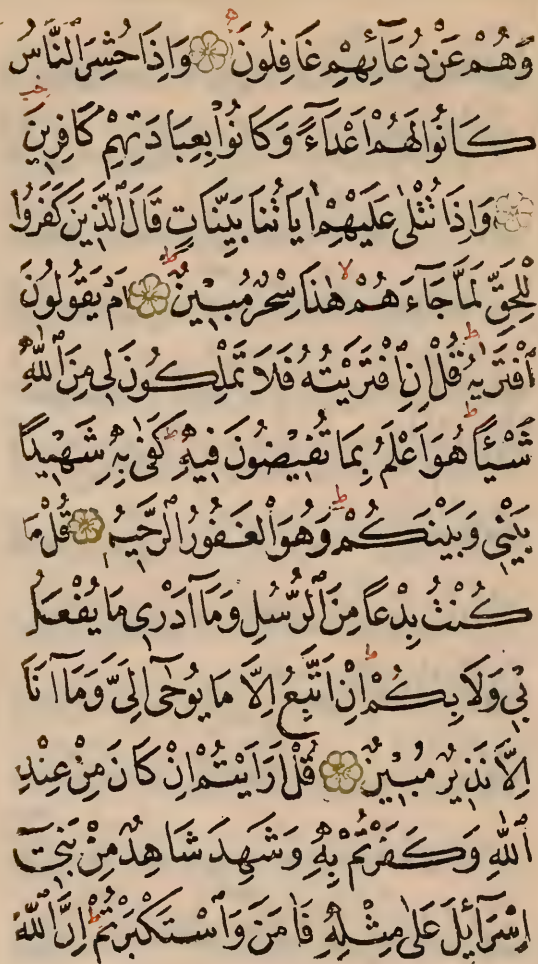 وَهُمْ عَنْ دُعَآئِهِمْ غَافِلُونَ وَاِذَا حُشِرَ النَّاسُ
كَانُوا لَهُمْ اَعْدَآءً وَكَانُوا بِعِبَادَتِهِمْ كَافِرِينَ
وَاِذَا تُتْلٰى عَلَيْهِمْ اٰيَاتُنَا بَيِّنَاتٍ قَالَ الَّذِينَ كَفَرُوا
لِلْحَقِّ لَمَّا جَآءَهُمْ هٰذَا سِحْرٌ مُبِينٌ اَمْ يَقُولُونَ
افْتَرٰيهُ قُلْ اِنِ افْتَرَيْتُهُ فَلَا تَمْلِكُونَ لِى مِنَ اللّٰهِ
شَيْئًا هُوَ اَعْلَمُ بِمَا تُفِيضُونَ فِيهِ كَفٰى بِهِ شَهِيدًا
بَيْنِى وَبَيْنَكُمْ وَهُوَ الْغَفُورُ الرَّحِيمُ قُلْ مَا
كُنْتُ بِدْعًا مِنَ الرُّسُلِ وَمَآ اَدْرِى مَا يُفْعَلُ
بِى وَلَا بِكُمْ اِنْ اَتَّبِعُ اِلَّا مَا يُوحٰٓى اِلَىَّ وَمَآ اَنَا
اِلَّا نَذِيرٌ مُبِينٌ قُلْ اَرَاَيْتُمْ اِنْ كَانَ مِنْ عِنْدِ
اللّٰهِ وَكَفَرْتُمْ بِهِ وَشَهِدَ شَاهِدٌ مِنْ بَنِىٓ
اِسْرَآئِلَ عَلٰى مِثْلِهِ فَاٰمَنَ وَاسْتَكْبَرْتُمْ اِنَّ اللّٰهَ